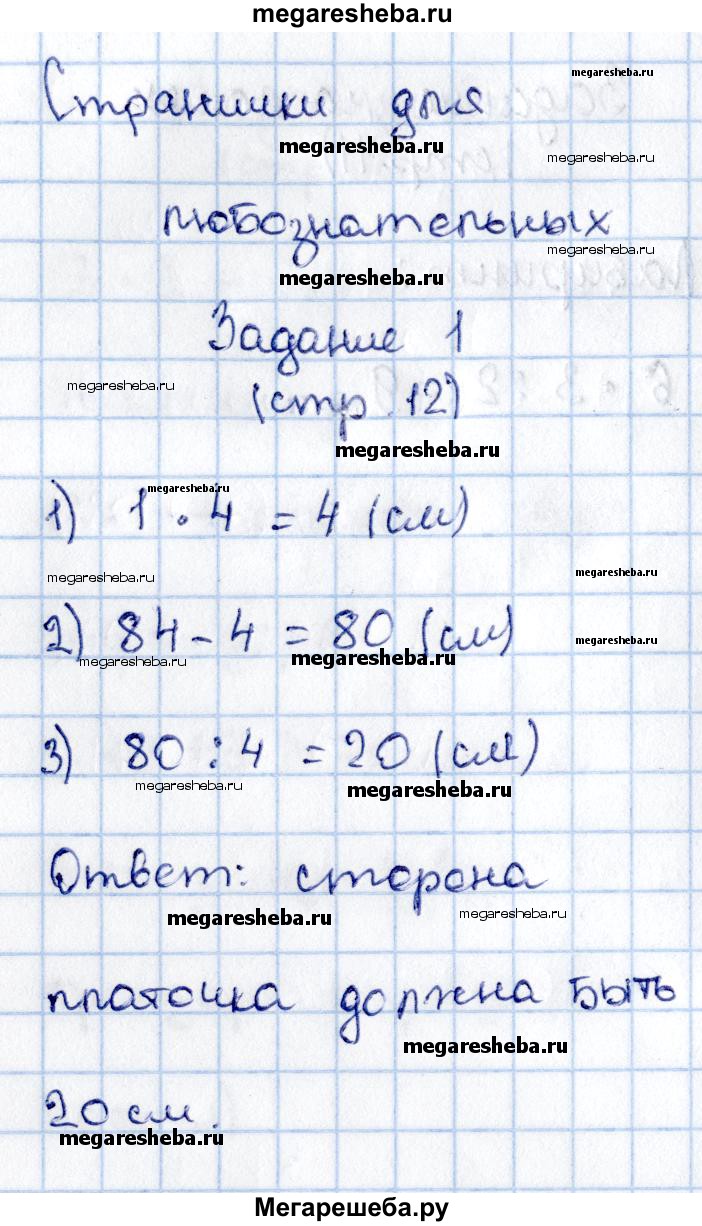 megaresheba.ru
megaresheba.ru
Странички для
megaresheba.ru
megaresheba.ru
любознательных
megaresheba.ru
megaresheba.ru
Задание 1
megaresheba.ru
(стр. 12)
megaresheba.ru
megaresheba.ru
1) 1 · 4 = 4 (см)
megaresheba.ru
megaresheba.ru
2) 84 - 4 = 80 (см)
megaresheba.ru
megaresheba.ru
megaresheba.ru
3) 80 : 4 = 20 (см)
megaresheba.ru
megaresheba.ru
Ответ: сторона
megaresheba.ru
megaresheba.ru
платочка должна быть
megaresheba.ru
20 см.
megaresheba.ru
Мегарешеба.ру